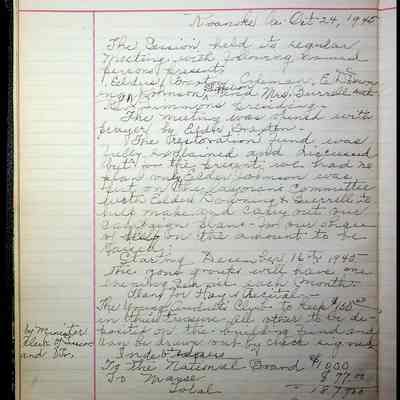 Roanoke Va. Oct 24, 1945
The Session held its regular
Meeting with following named
persons present,
Elders Braxton, Coleman, E. Down
ing, Johnson, and Mrs. Burrell with
Simmons presiding.
The meeting was opened with
prayer by Elder Braxton.
The Restoration fund was
fully explained and discussed
but for the present we had no
plan only Elder Johnson was
put on the Layman Committee
with Elders Downing & Burrell to
help make and carry out our
campaign plans for our share
on the amount to be
raised.
Starting December 16th 1945
the young people will have one
evening each month.
Plans for Hays Recital
The Young Adults Club to keep $100.00
in their treasury all other to be de-
posited on the building fund and
can be drawn out by check signed
by Minister
Clerk of Session
and
Indebtedness
To the National Board $1000
To Mayse $ 77.00
Total